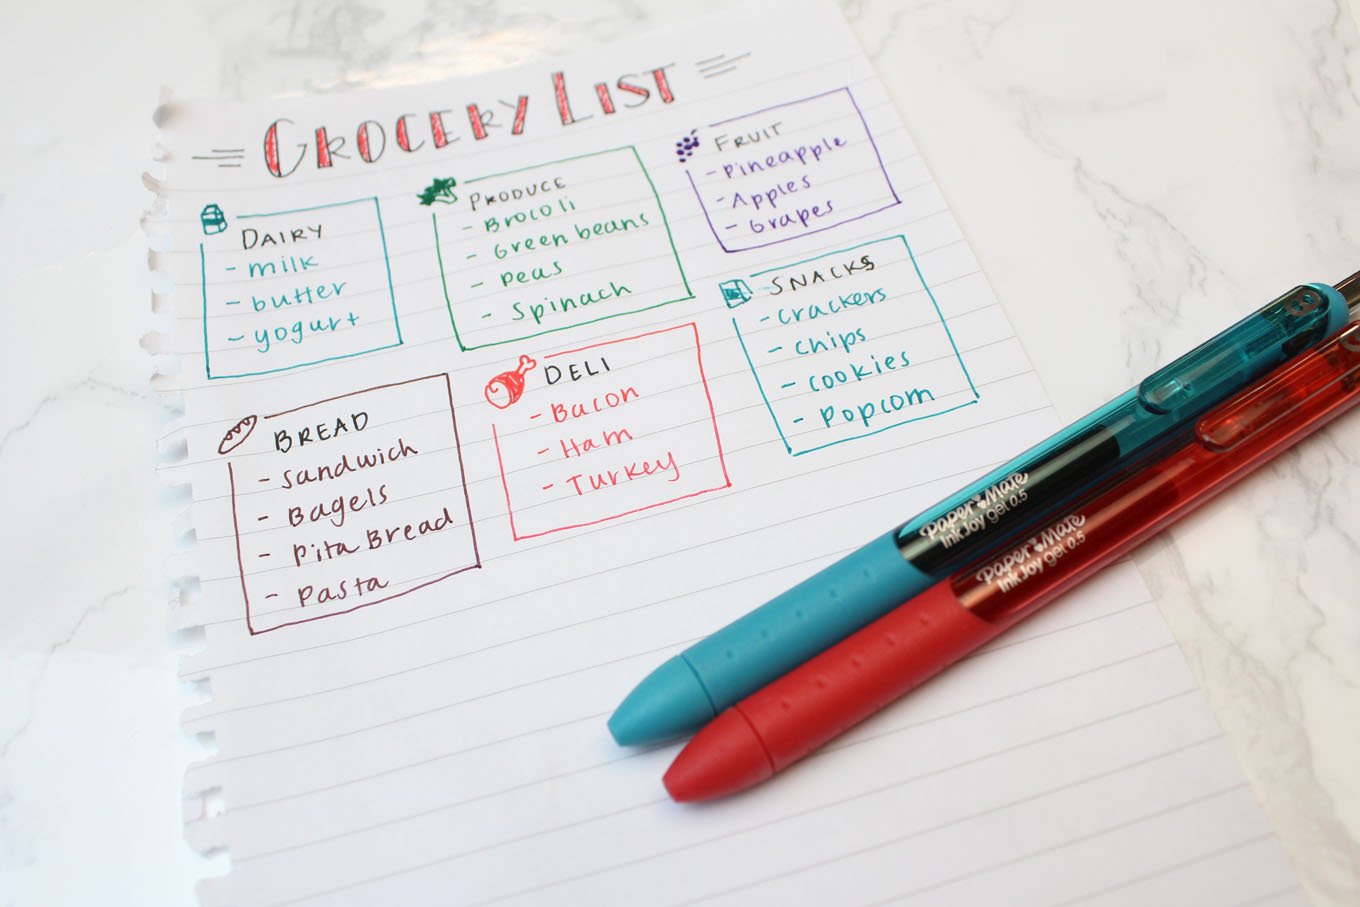 GROCERY LIST
DAIRY
- milk
- butter
- yogurt
PRODUCE
- Brocoli
- Green beans
- Peas
- Spinach
FRUIT
- Pineapple
- Apples
- Grapes
BREAD
- Sandwich
- Bagels
- Pita Bread
- Pasta
DELI
- Bacon
- Ham
- Turkey
SNACKS
- Crackers
- Chips
- Cookies
- Popcorn
Paper Mate
InkJoy gel 0.5
Paper Mate
InkJoy gel 0.5